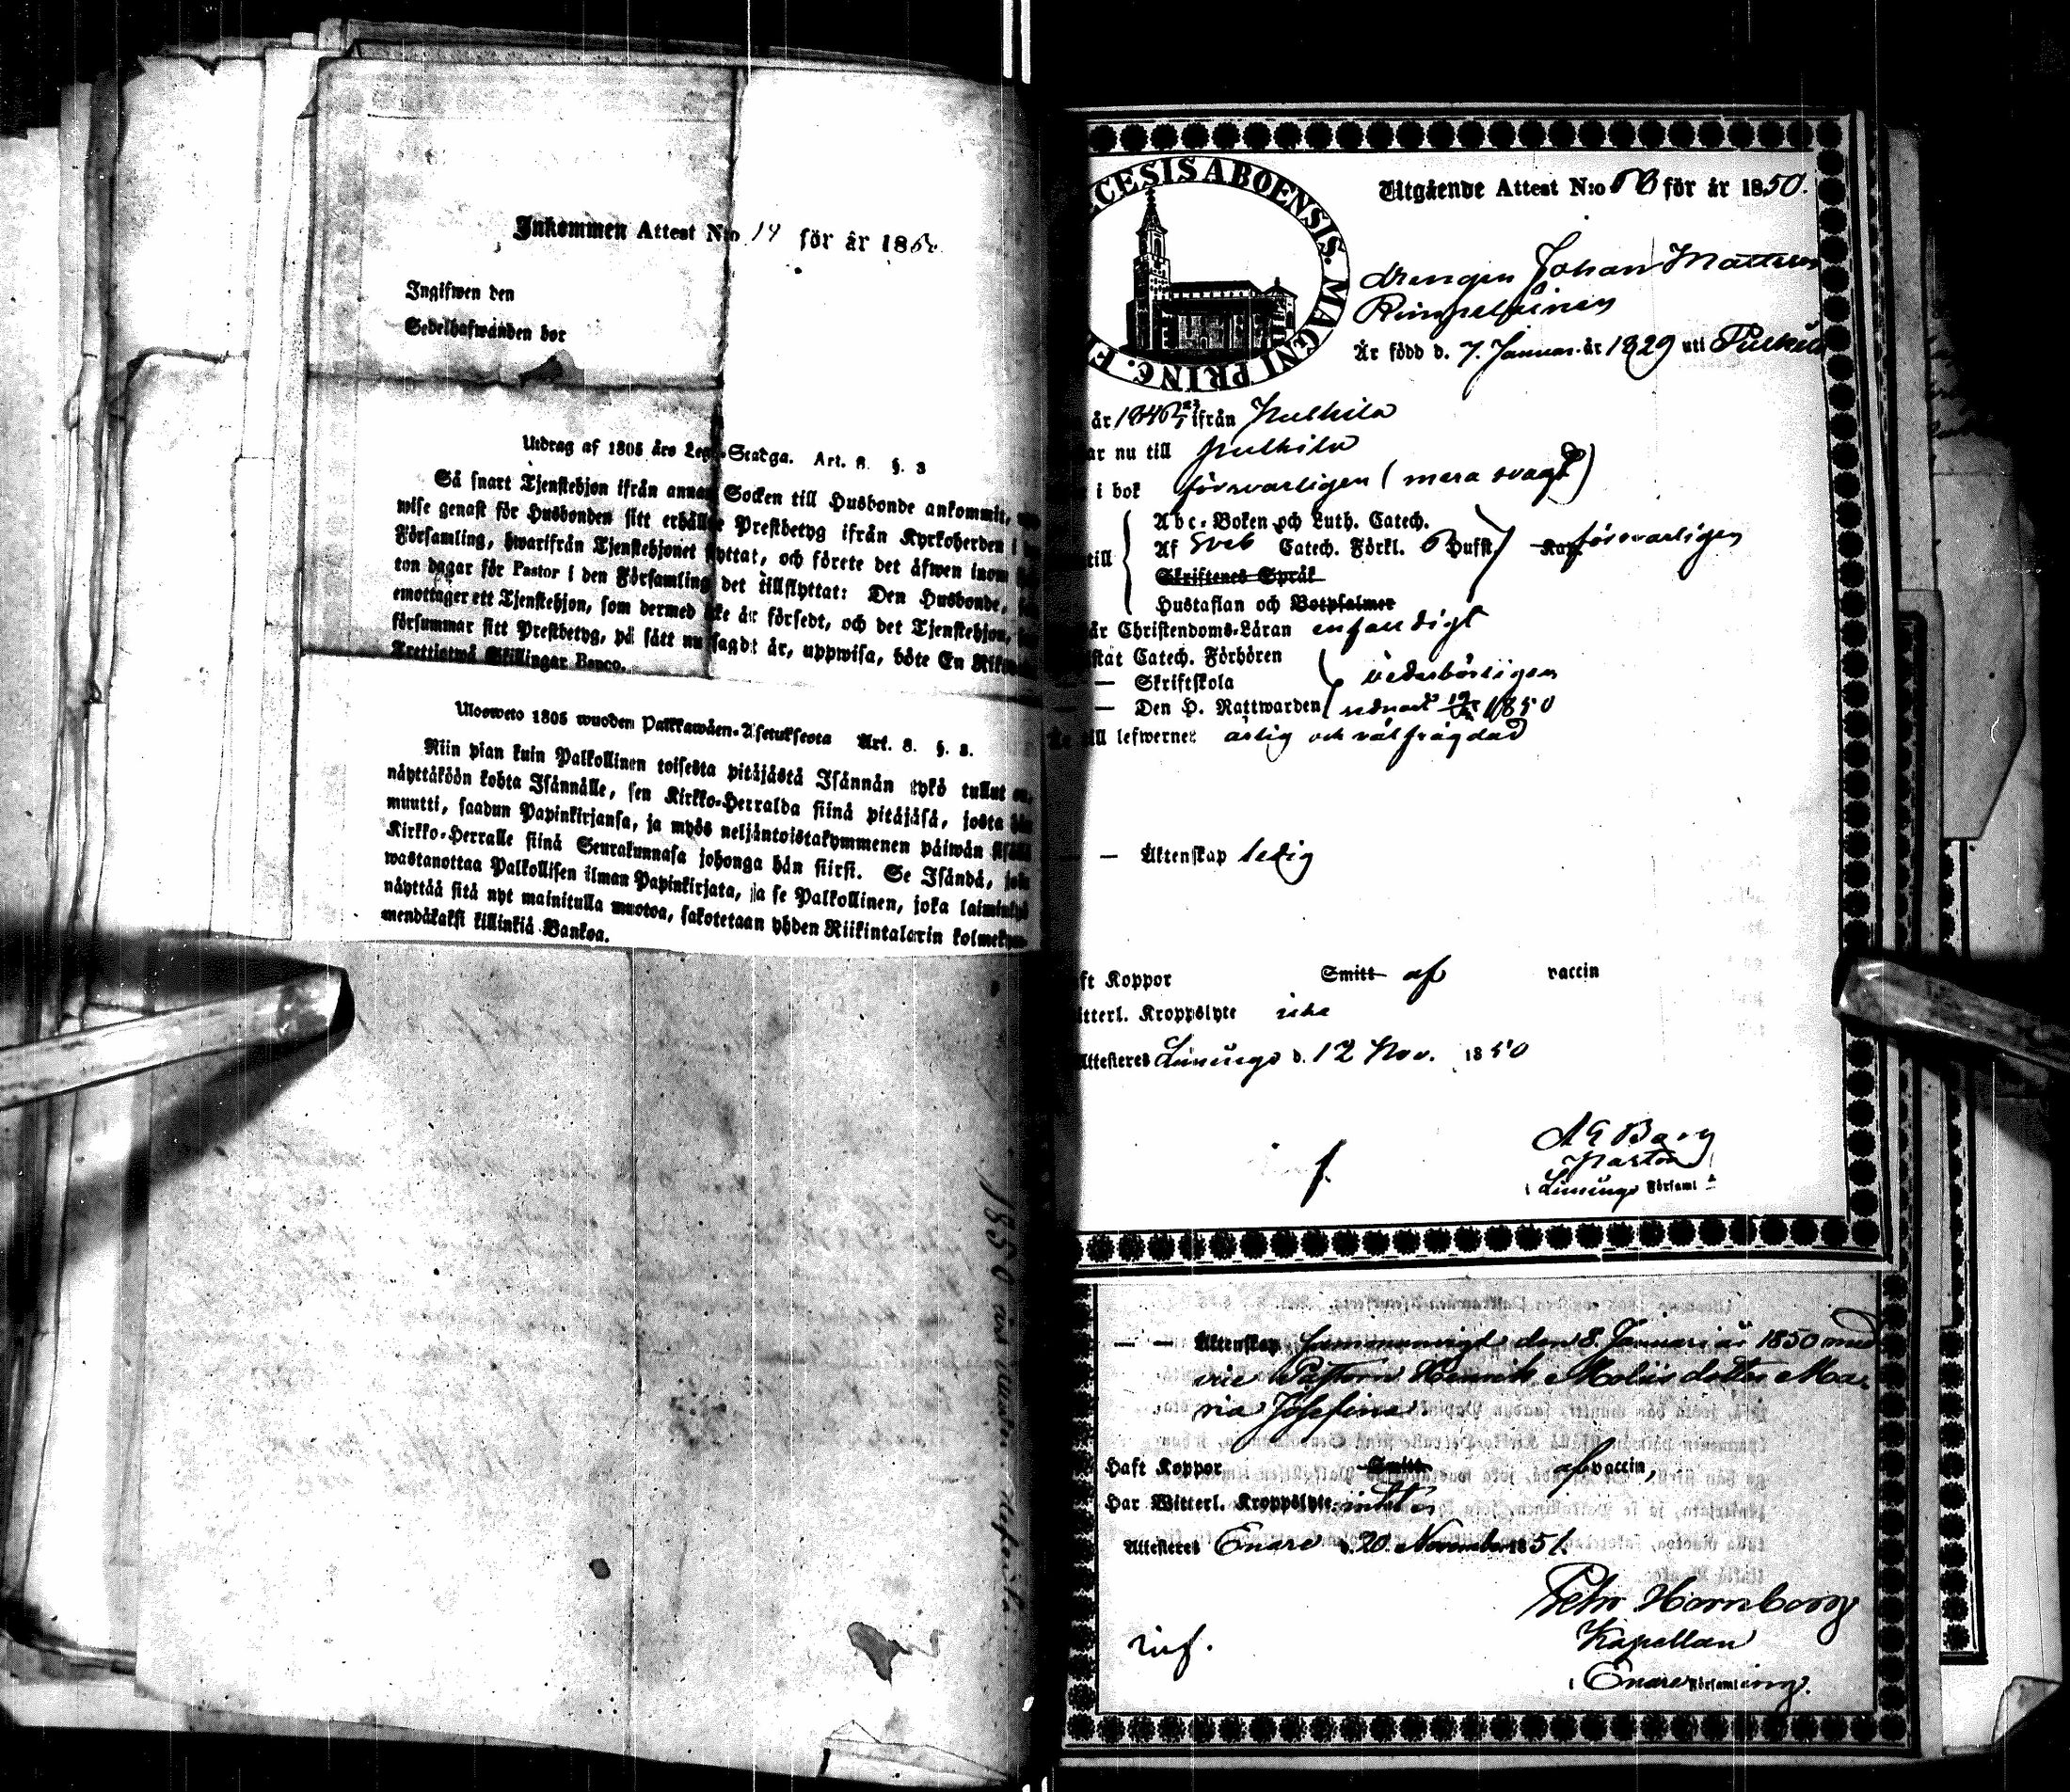 Inkommen Attest N:o 14 för år 185
Ingifwen den
Sedelhafwanden bor
Utdrag af 1805 års Lego-Stadga. Art. 8. §. 3
Så snart Tjenstehjon ifrån annan Socken till Husbonde ankommit,
wise genast för Husbonden sitt erhållne Prestbetyg ifrån Kyrkoherden i
Församling, hwarifrån Tjenstehjonet flyttat, och förete det äfwen inom
ton dagar för Pastor i den Församling det tillflyttat: Den Husbonde,
emottager ett Tjenstehjon, som dermed icke är försedt, och det Tjenstehjon,
försummar sitt Prestbetyg, på sätt nu sagdt är, uppwisa, böte En Riks
Trettiotwå Skillingar Banco.
Ulosweto 1805 wuoden Palkkawäen-Asetuksesta Art. 8. §. 3.
Niin pian kuin Palkollinen toisesta pitäjästä Isännän tykö tullut on,
näyttäköön kohta Isännälle, sen Kirkko-Herralda siinä pitäjäsä, josta hän
muutti, saadun Papinkirjansa, ja myös neljäntoistakymmenen päiwän sisällä
Kirkko-Herralle siinä Seurakunnasa johonga hän siirsi. Se Isändä, joka
wastanottaa Palkollisen ilman Papinkirjata, ja se Palkollinen, joka laiminlyö
näyttää sitä nyt mainitulla muotoa, sakotetaan yhden Riikintalarin kolmekym-
mendäkaksi killinkiä Bankoa.
1850 års
CESIS ABOENSIS. MAGNI PRINC. FI
Utgående Attest N:o för år 1850.
drengen Johan Mattsson
Rimpeläinen
Är född d. 7. Januar. år 1829 uti Pulkila
år 184 ifrån Pulkila
ar nu till Pulkila
i bok försvarligen (mera svagt)
Abc-Boken och Luth. Catech.
till Af Sveb Catech. Förkl. 6 Hufst. försvarligen
Skriftenes Språk
Hustaflan och Botpsalmer
år Christendoms-Läran enfaldigt
stat Catech. Förhören
— Skriftskola vederbörligen
— Den H. Nattwarden senast 1850
till lefwernet ärlig och välfrägdad
— — Äktenskap ledig
ft Koppor Smitt af vaccin
itterl. Kroppslyte icke
Attesteres Limingo d. 12 Nov. 1850
Pastor
i Limingo Församl
— — Äktenskap sammanvigd den 8. Januari år 1850 med
vice Pastorn Henrik dotter Ma-
ria Josefina
Haft Koppor Smitt af vaccin,
Har Witterl. Kroppslyte intet
Attesteres Enare d. 20. November 1851.
Petr Hornborg
Kapellan
i Enare Församling.